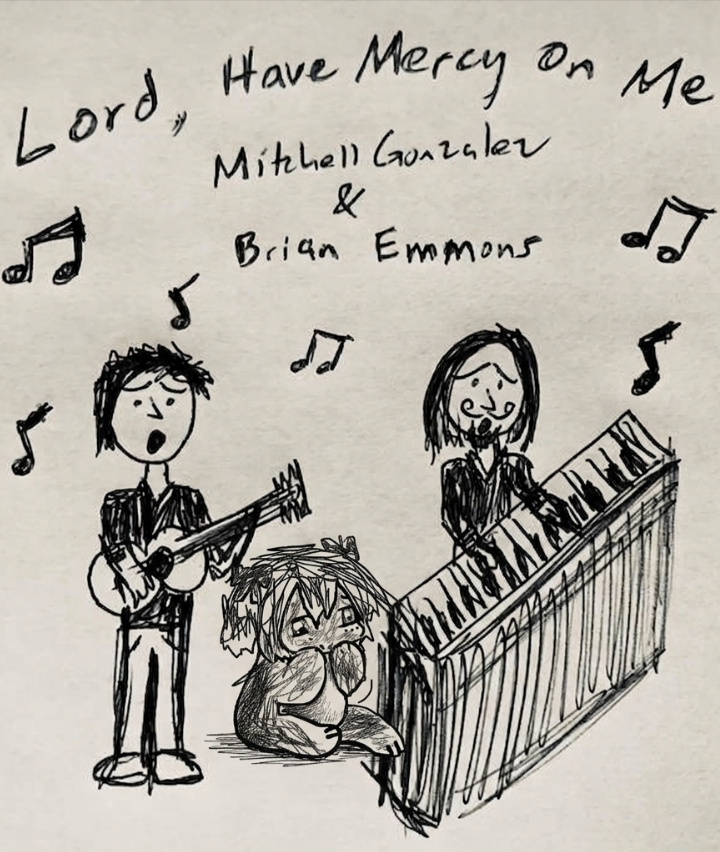 Lord, Have Mercy On Me
Mitchell Gonzalez
&
Brian Emmons